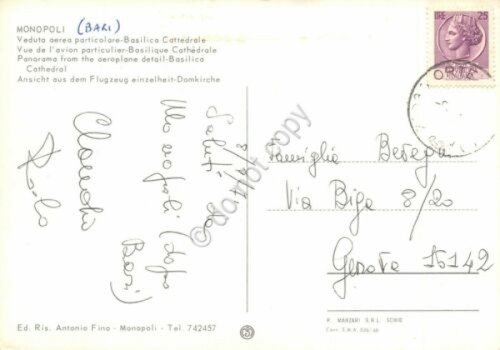 MONOPOLI (BARI)
Veduta aerea particolare-Basilica Cattedrale
Vue de l'avion particulier-Basilique Cathédrale
Panorama from the aeroplane detail-Basilica
Cathedral
Ansicht aus dem Flugzeug einzelheit-Domkirche
LIRE 25
Saluti da
Monopoli (dopo
Bari)
Claudio
Famiglia
Via Biga 8/20
Genova 15142
Ed. Ris. Antonio Fino - Monopoli - Tel. 742457
R. MANZARI S.R.L. SCHIO
do not copy